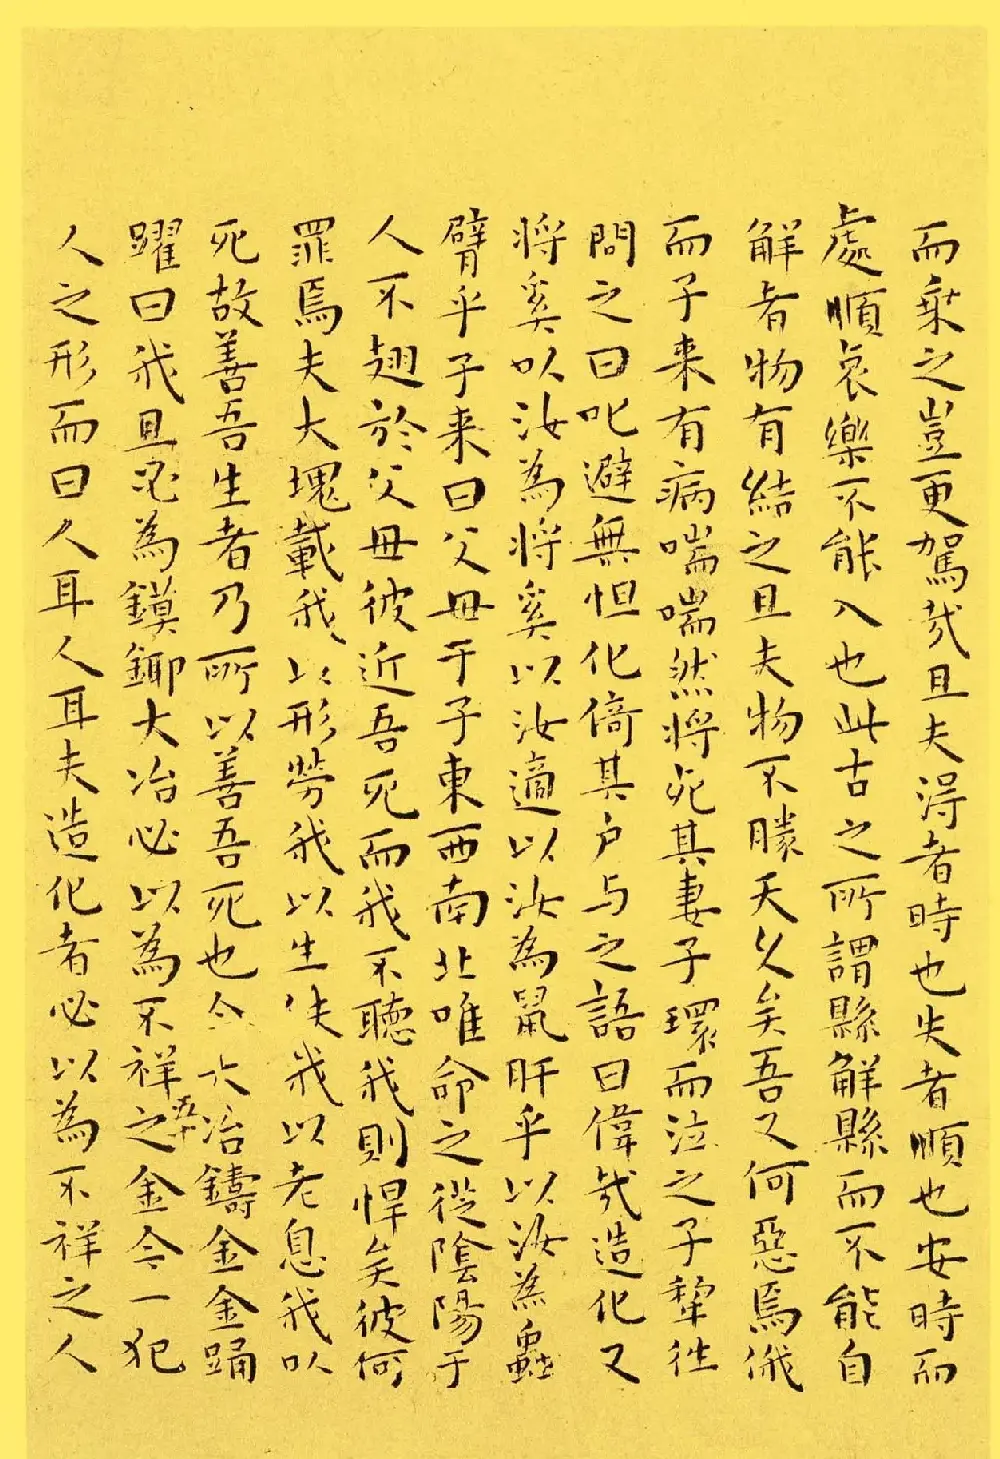 而乗之豈更駕哉且夫淂者時也失者順也安時而
處順哀樂不能入也此古之所謂縣解縣而不能自
解者物有結之且夫物不勝天久矣吾又何惡焉俄
而子来有病喘喘然將死其妻子環而泣之子犂徃
問之曰叱避無怛化倚其户与之語曰偉哉造化又
将奚以汝為将奚以汝適以汝為鼠肝乎以汝為蟲
臂乎子来曰父母于子東西南北唯命之從陰陽于
人不翅於父母彼近吾死而我不聽我則悍矣彼何
罪焉夫大塊載我以形勞我以生佚我以老息我以
死故善吾生者乃所以善吾死也今大冶鑄金金踊
躍曰我且必為鏌鋣大冶必以為不祥之金今一犯
人之形而曰人耳人耳夫造化者必以為不祥之人